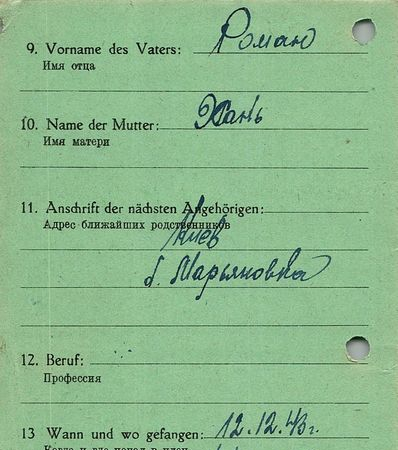 9. Vorname des Vaters: Роман
Имя отца
10. Name der Mutter: Хань
Имя матери
11. Anschrift der nächsten Angehörigen:
Адрес ближайших родственников
Киев
б. Марьяновка
12. Beruf:
Профессия
13 Wann und wo gefangen: 12.12.43г.
Когда и где попал в плен